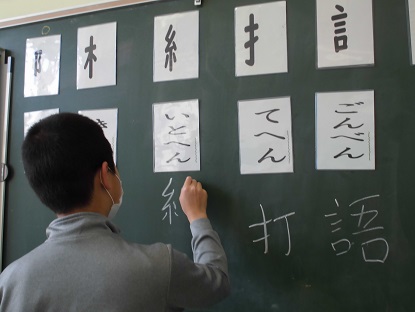 阝 木 糸 扌 言
き いとへん てへん ごんべん
糸 打 語